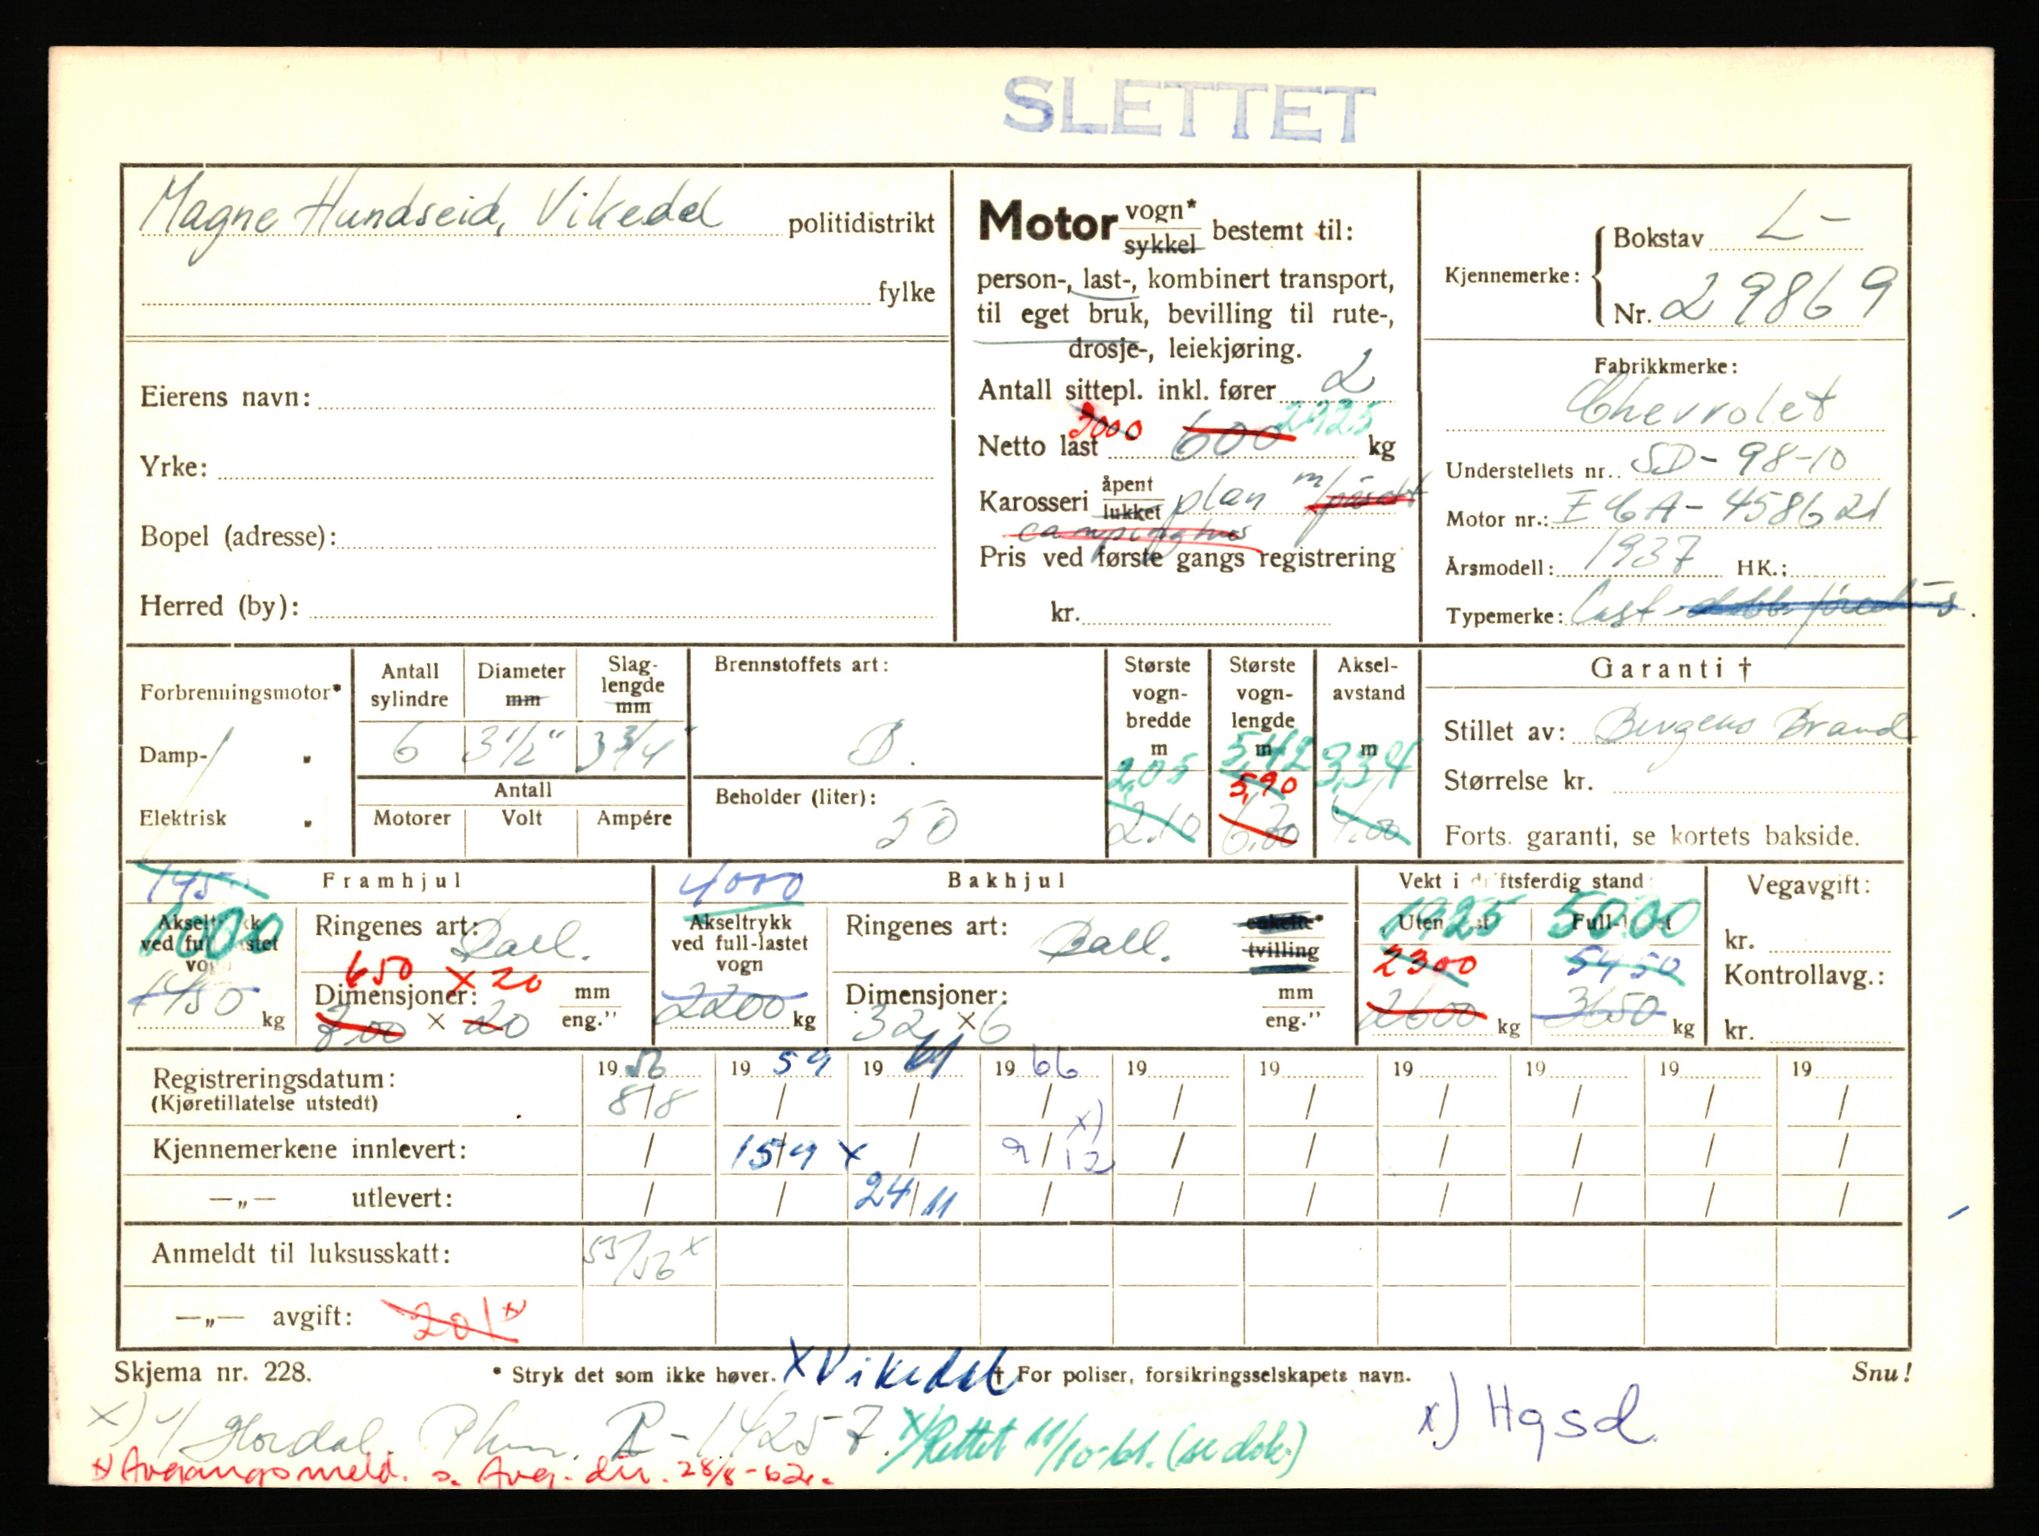 SLETTET
Magne Hundseid, Vikedal politidistrikt
fylke
Eierens navn:
Yrke:
Bopel (adresse):
Herred (by):
Motor vogn* sykkel bestemt til:
person-, last-, kombinert transport,
til eget bruk, bevilling til rute-,
drosje-, leiekjøring.
Antall sittepl. inkl. fører 2
Netto last 3000 600 2925 kg
Karosseri åpent lukket plan m/
campinghus
Pris ved første gangs registrering
kr.
Kjennemerke: Bokstav L-
Nr. 29869
Fabrikkmerke:
Chevrolet
Understellets nr.. SD-98-10
Motor nr.: 458621
Årsmodell: 1937 HK.:
Typemerke: Last
Forbrenningsmotor*
Damp- "
Elektrisk "
Antall sylindre 6
Diameter mm 3 1/2"
Slaglengde mm 3 3/4"
Antall
Motorer Volt Ampére
Brennstoffets art:
B.
Beholder (liter):
50
Største vognbredde m 2,05 2.10
Største vognlengde m 5,42 5,90 6.20
Akselavstand m 3,34 4.00
Garanti †
Stillet av: Bergens Brand
Størrelse kr.
Forts. garanti, se kortets bakside.
Framhjul
Akseltrykk ved full-lastet vogn 1450 kg
Ringenes art: Ball.
650 x 20
Dimensjoner: mm
x 20 eng."
4000 Bakhjul
Akseltrykk ved full-lastet vogn 2200 kg
Ringenes art: Ball. enkelte* tvilling
Dimensjoner: mm
32 x 6 eng."
Vekt i driftsferdig stand:
Uten last 1925 2300 2600 kg
Full-lastet 5000 5450 3650 kg
Vegavgift:
kr.
Kontrollavg.:
kr.
Registreringsdatum: 1956 1959 1961 1966 19 19 19 19 19 19
(Kjøretillatelse utstedt) 8/8 / / / / / / / / /
Kjennemerkene innlevert: / 15/9 x / 9/12 x) / / / / / /
—„— utlevert: / / 24/11 / / / / / / /
Anmeldt til luksusskatt: 55/56 x
—„— avgift: 201 x
Skjema nr. 228. * Stryk det som ikke høver. x Vikedal † For poliser, forsikringsselskapets navn. Snu!
x) Hordal. R-14257. x) Rettet 11/10-61. (se dok.) x) Hgsd.
x) Avgangsmeld. s. Avg. dir. 28/8-62